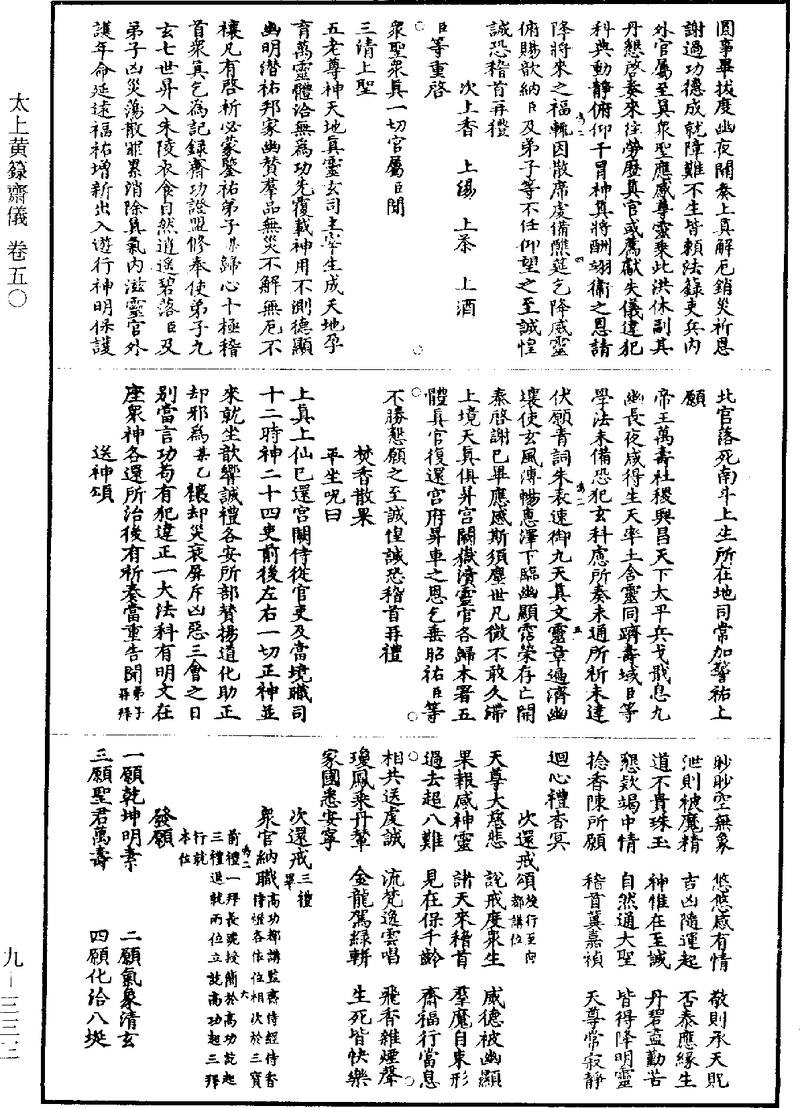 圓事畢拔度幽夜開奏上真解厄銷災祈恩
謝過功德成就障難不生皆賴法籙吏兵內
外官屬至真衆聖應感尊靈乘此洪休副其
丹懇啓奏來往勞歷真官或薦獻失儀違犯
科典動靜俯仰干冒神真將酬翊衛之恩請
降將來之福輒因散席虔備醮筵乞降威靈
俯賜歆納臣及弟子等不任仰望之至誠惶
誠恐稽首再禮
次上香 上湯 上茶 上酒
臣等重啓
衆聖衆真一切官屬臣聞
三清上聖
五老尊神天地真靈玄司主宰生成天地孕
育萬靈體洽無為功先覆載神用不測德顯
幽明潛祐邦家幽贊羣品無災不解無厄不
禳凡有啓祈必家鑒祐弟子某歸心十極稽
首衆真乞為記錄齋功證盟修奉使弟子九
玄七世昇入朱陵衣食自然逍遥碧落臣及
弟子凶災蕩散罪累銷除真氣內滋靈官外
護年命延遠福祐增新出入遊行神明保護
北官落死南斗上生所在地司常加警祐上
願
帝王萬壽社稷興昌天下太平兵戈戢息九
幽長夜咸得生天率土含靈同躋壽域臣等
學法未備恐犯玄科慮所奏未通所祈未達
伏願青詞朱表速御九天真文靈章遍濟幽
壤使玄風溥暢惠澤下臨幽顯霑榮存亡開
泰啓謝已畢應感斯須塵世凡微不敢久滯
上境天真俱昇宮闕嶽瀆靈官各歸本署五
體真官復還宮府昇車之恩乞垂昭祐臣等
不勝懇願之至誠惶誠恐稽首再禮
焚香散果
平坐呪曰
上真上仙已還宮闕侍從官吏及當境職司
十二時神二十四吏前後左右一切正神並
來就坐歆饗誠禮各安所部贊揚道化助正
却邪為某乙禳却災衰屏斥凶惡三會之日
別當言功苟有犯違正一大法科有明文在
座衆神各還所治後有祈奏當重告聞弟子再拜
送神頌
眇眇空無象 悠悠感有情 敬則承天貺
泄則被魔精 吉凶隨運起 否泰應緣生
道不貴珠玉 神惟在至誠 丹碧盍勤苦
懇欵竭中情 自然通大聖 皆得降明靈
捻香陳所願 稽首冀嘉禎 天尊常寂靜
迴心禮香冥
次還戒頌旋行至向都講位
天尊大慈悲 說戒度衆生 威德被幽顯
果報感神靈 諸天來稽首 羣魔自束形
過去超八難 見在保千齡 齋福行當息
相共送虔誠 流梵逸雲唱 飛香雜煙聲
瓊鳳乘丹輦 金龍駕綠軿 生死皆快樂
家國悉安寧
次還戒三禮畢
衆官納職高功都講監齋侍經侍香侍燈各依位相次於三寶
前禮一拜長跪授簡於高功訖起
三禮退就兩位立訖高功起三拜
行就本位
發願
一願乾坤明素 二願氣象清玄
三願聖君萬壽 四願化洽八埏
太上黃籙齋儀 卷五〇
九—三三二